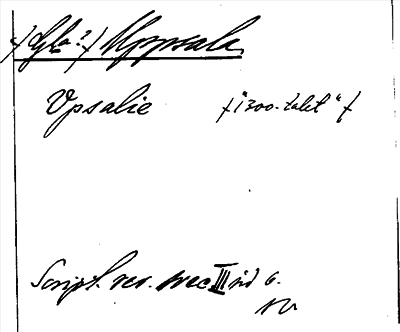 ⌿ Gla? ⌿ Uppsala
Vpsalie ⌿ "1300-talet" ⌿
Script. rer. svec III sid 6.